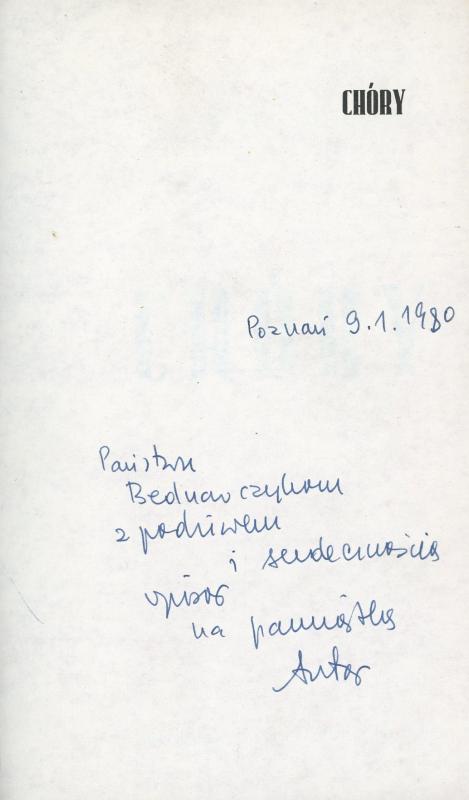 CHÓRY
Poznań 9.1.1980
Państwu
Bednarczykom
z podziwem
i serdecznością
wpisał
na pamiątkę
Autor